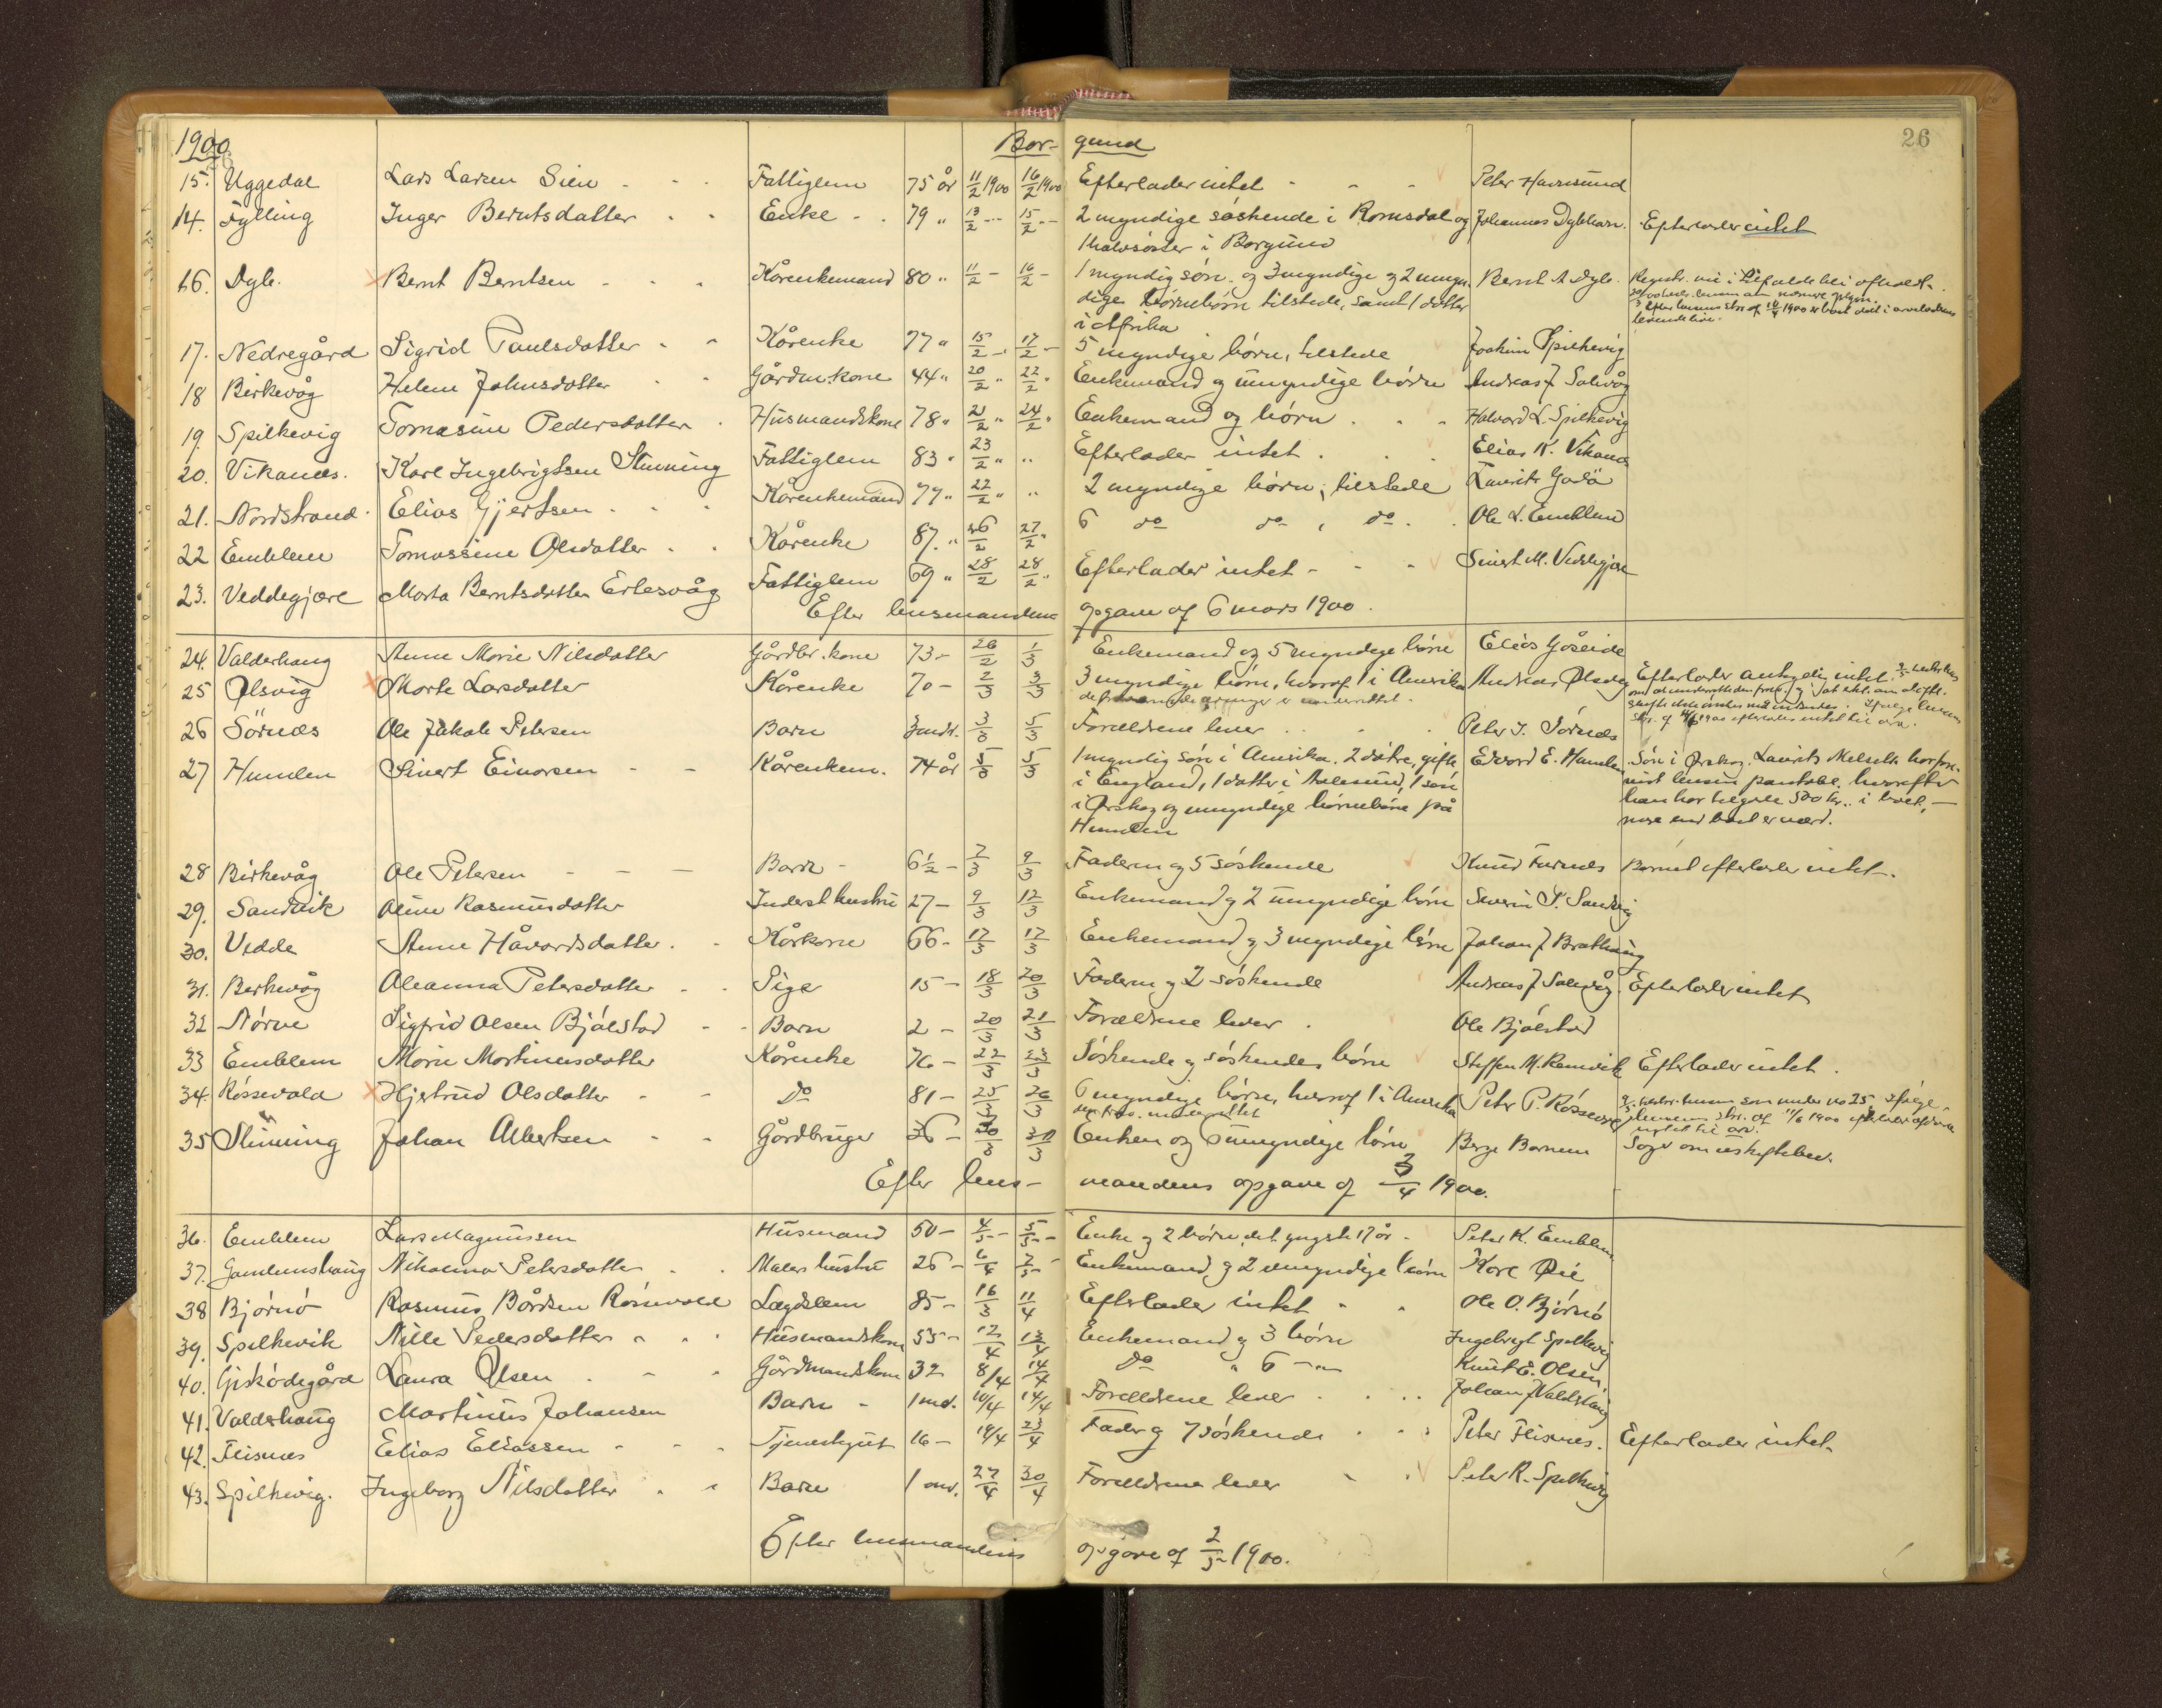 1900. Bor- gund 26
15. Uggedal Lars Larsen Sien Fattiglem 75 år 11/2 1900 16/2 1900 Efterlader intet Peter Havnsund
14. Fylling Inger Berntsdatter Enke 79 " 13/2 15/2 2 myndige søskende i Romsdal og Johannes Dybhavn. Efterlader intet
1 halvsøster i Borgund
16. Dyb. Bernt Berntsen Kårenkemand 80 " 11/2 16/2 1 myndig søn og 3 myndige og 2 umyn- Bernt A Dyb.
dige børnebørn tilstede, samt 1 datter
i Afrika
17. Nedregård Sigrid Paulsdatter Kårenke 77 " 15/2 17/2 5 myndige børn, tilstede Joakim Spilkevig
18 Birkevåg Helene Johnsdatter Gårdm.kone 44 " 20/2 22/2 Enkemand og umyndige børn Andreas J Solevåg
19. Spilkevig Tomasine Pedersdatter Husmandskone 78 " 21/2 24/2 Enkemand og børn Halvard L. Spilkevig
20. Vikanes. Karl Ingebrigtsen Stenning Fattiglem 83 " 23/2 " Efterlader intet Elias K. Vikanes
21. Nordstrand Elias Gjertsen Kårenkemand 77 " 22/2 " 2 myndige børn, tilstede Laurits Godø
22 Emblem Tomassine Olsdatter Kårenke 87. " 26/2 27/2 6 do do, do. Ole L. Emblem
23. Veddegjære Marta Berntsdatter Erlesvåg Fattiglem 69 " 28/2 28/2 Efterlader intet Sivert M. Veddegjære
Efter lensmandens opgave af 6 mars 1900.
24. Valderhaug Anne Marie Nilsdatter Gårdbr.kone 73 - 26/2 1/3 Enkemand og 5 myndige børn Elias Gåseide
25 Ølsvig Marte Larsdatter Kårenke 70 - 2/3 3/3 3 myndige børn, hvoraf 1 i Amerika Andreas Ølsvig Efterlader antagelig intet.
26 Sörnes Ole Jakob Petersen Barn 3 mdr. 3/3 5/3 Forældrene lever Peter J. Sørnes
27 Humlen Sivert Einarsen Kårenkem. 74 år 5/3 5/3 1 myndig søn i Amerika. 2 døtre, gifte Edvard E. Humlen Søn i Ørskog. Laurits Melseth har
i England, 1 datter i Aalesund, 1 søn
i Ørskog og umyndige børnebørn på han har tilgode 500 kr. i boet, -
Humlen mere end boet er værd.
28 Birkevåg Ole Petersen Barn 6½ - 7/3 9/3 Faderen og 5 søskende Knud Furnes Barnet efterlader intet.
29. Sandvik Oline Rasmusdatter Inderst hustru 27 - 9/3 12/3 Enkemand og 2 umyndige børn Severin P. Sandvig
30. Vedde Anne Håvardsdatter Kårkone 66 - 17/3 17/3 Enkemand og 3 myndige børn Johan J Brathaug
31. Birkevåg Oleanna Petersdatter Pige 15 - 18/3 20/3 Faderen og 2 søskende Andreas J Solevåg. Efterlader intet
32 Nørve Sigfrid Olsen Bjølstad Barn 2 - 20/3 21/3 Forældrene lever Ole Bjølstad
33 Emblem Marie Martinusdatter Kårenke 76 - 22/3 23/3 Søskende og søskendes børn Steffen M. Remvik Efterlader intet.
34. Røssevold Hjertrud Olsdatter Do 81 - 25/3 26/3 6 myndige børn, hvoraf 1 i Amerika Peter P. Røssevold
35 Stenning Johan Albertsen Gårdbruger 36 - 30/3 31/3 Enken og umyndige børn Berge Barnem Søger om uskiftebev.
Efter lens- mandens opgave af 3/4 1900.
36. Emblem Lars Magnussen Husmand 50 - 4/5 5/5 Enke og 2 børn, det yngste 17 år. Peter K. Emblem
37. Gamlemshaug Nikoline Petersdatter Malers hustru 26 - 6/4 7/5 Enkemand og 2 umyndige børn Karl Øie
38 Bjørnø Rasmus Bårdsen Rørvold Lægdslem 85 - 16/3 11/4 Efterlader intet Ole O. Bjørnø
39. Spilkevik Nille Pedersdatter Husmandskone 55 - 12/4 13/4 Enkemand og 3 børn Ingebrigt Spilkevig
40. Giskødegård Laura Olsen Gårdmandskone 32 8/4 14/4 Do " 6 - " Knut E. Olsen
41. Valderhaug Martinus Johansen Barn 1 md. 10/4 14/4 Forældrene lever Johan J Valdrhaug
42. Flisnes Elias Eliassen Tjenestgut 16 - 18/4 23/4 Fader og 7 søskende Peter Flisnes. Efterlader intet.
43. Spilkevig. Ingeborg Nilsdatter Barn 1 md. 27/4 30/4 Forældrene lever Peter R. Spilkevig
Efter lensmandens opgave af 2/5 1900.